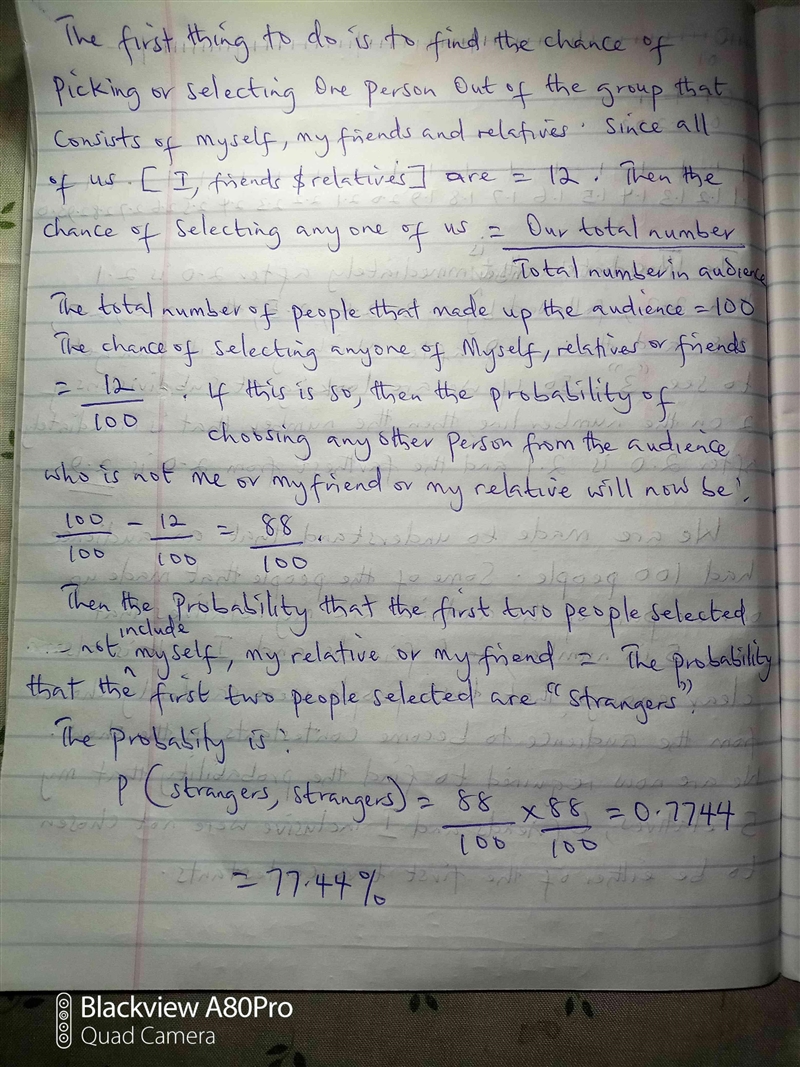 The first thing to do is to find the chance of
Picking or selecting One person Out of the group that
Consists of myself, my friends and relatives. Since all
of us [I, friends & relatives] are = 12. Then the
chance of Selecting any one of us = Our total number
Total number in audience
The total number of people that made up the audience = 100
The chance of selecting anyone of Myself, relatives or friends
= 12/100. If this is so, then the probability of
choosing any other person from the audience
who is not me or my friend or my relative will now be:
100/100 - 12/100 = 88/100.
Then the Probability that the first two people selected
not include myself, my relative or my friend = The probability
that the first two people selected are "strangers".
The Probabity is:
P (strangers, strangers) = 88/100 x 88/100 = 0.7744
= 77.44%
Blackview A80Pro
Quad Camera